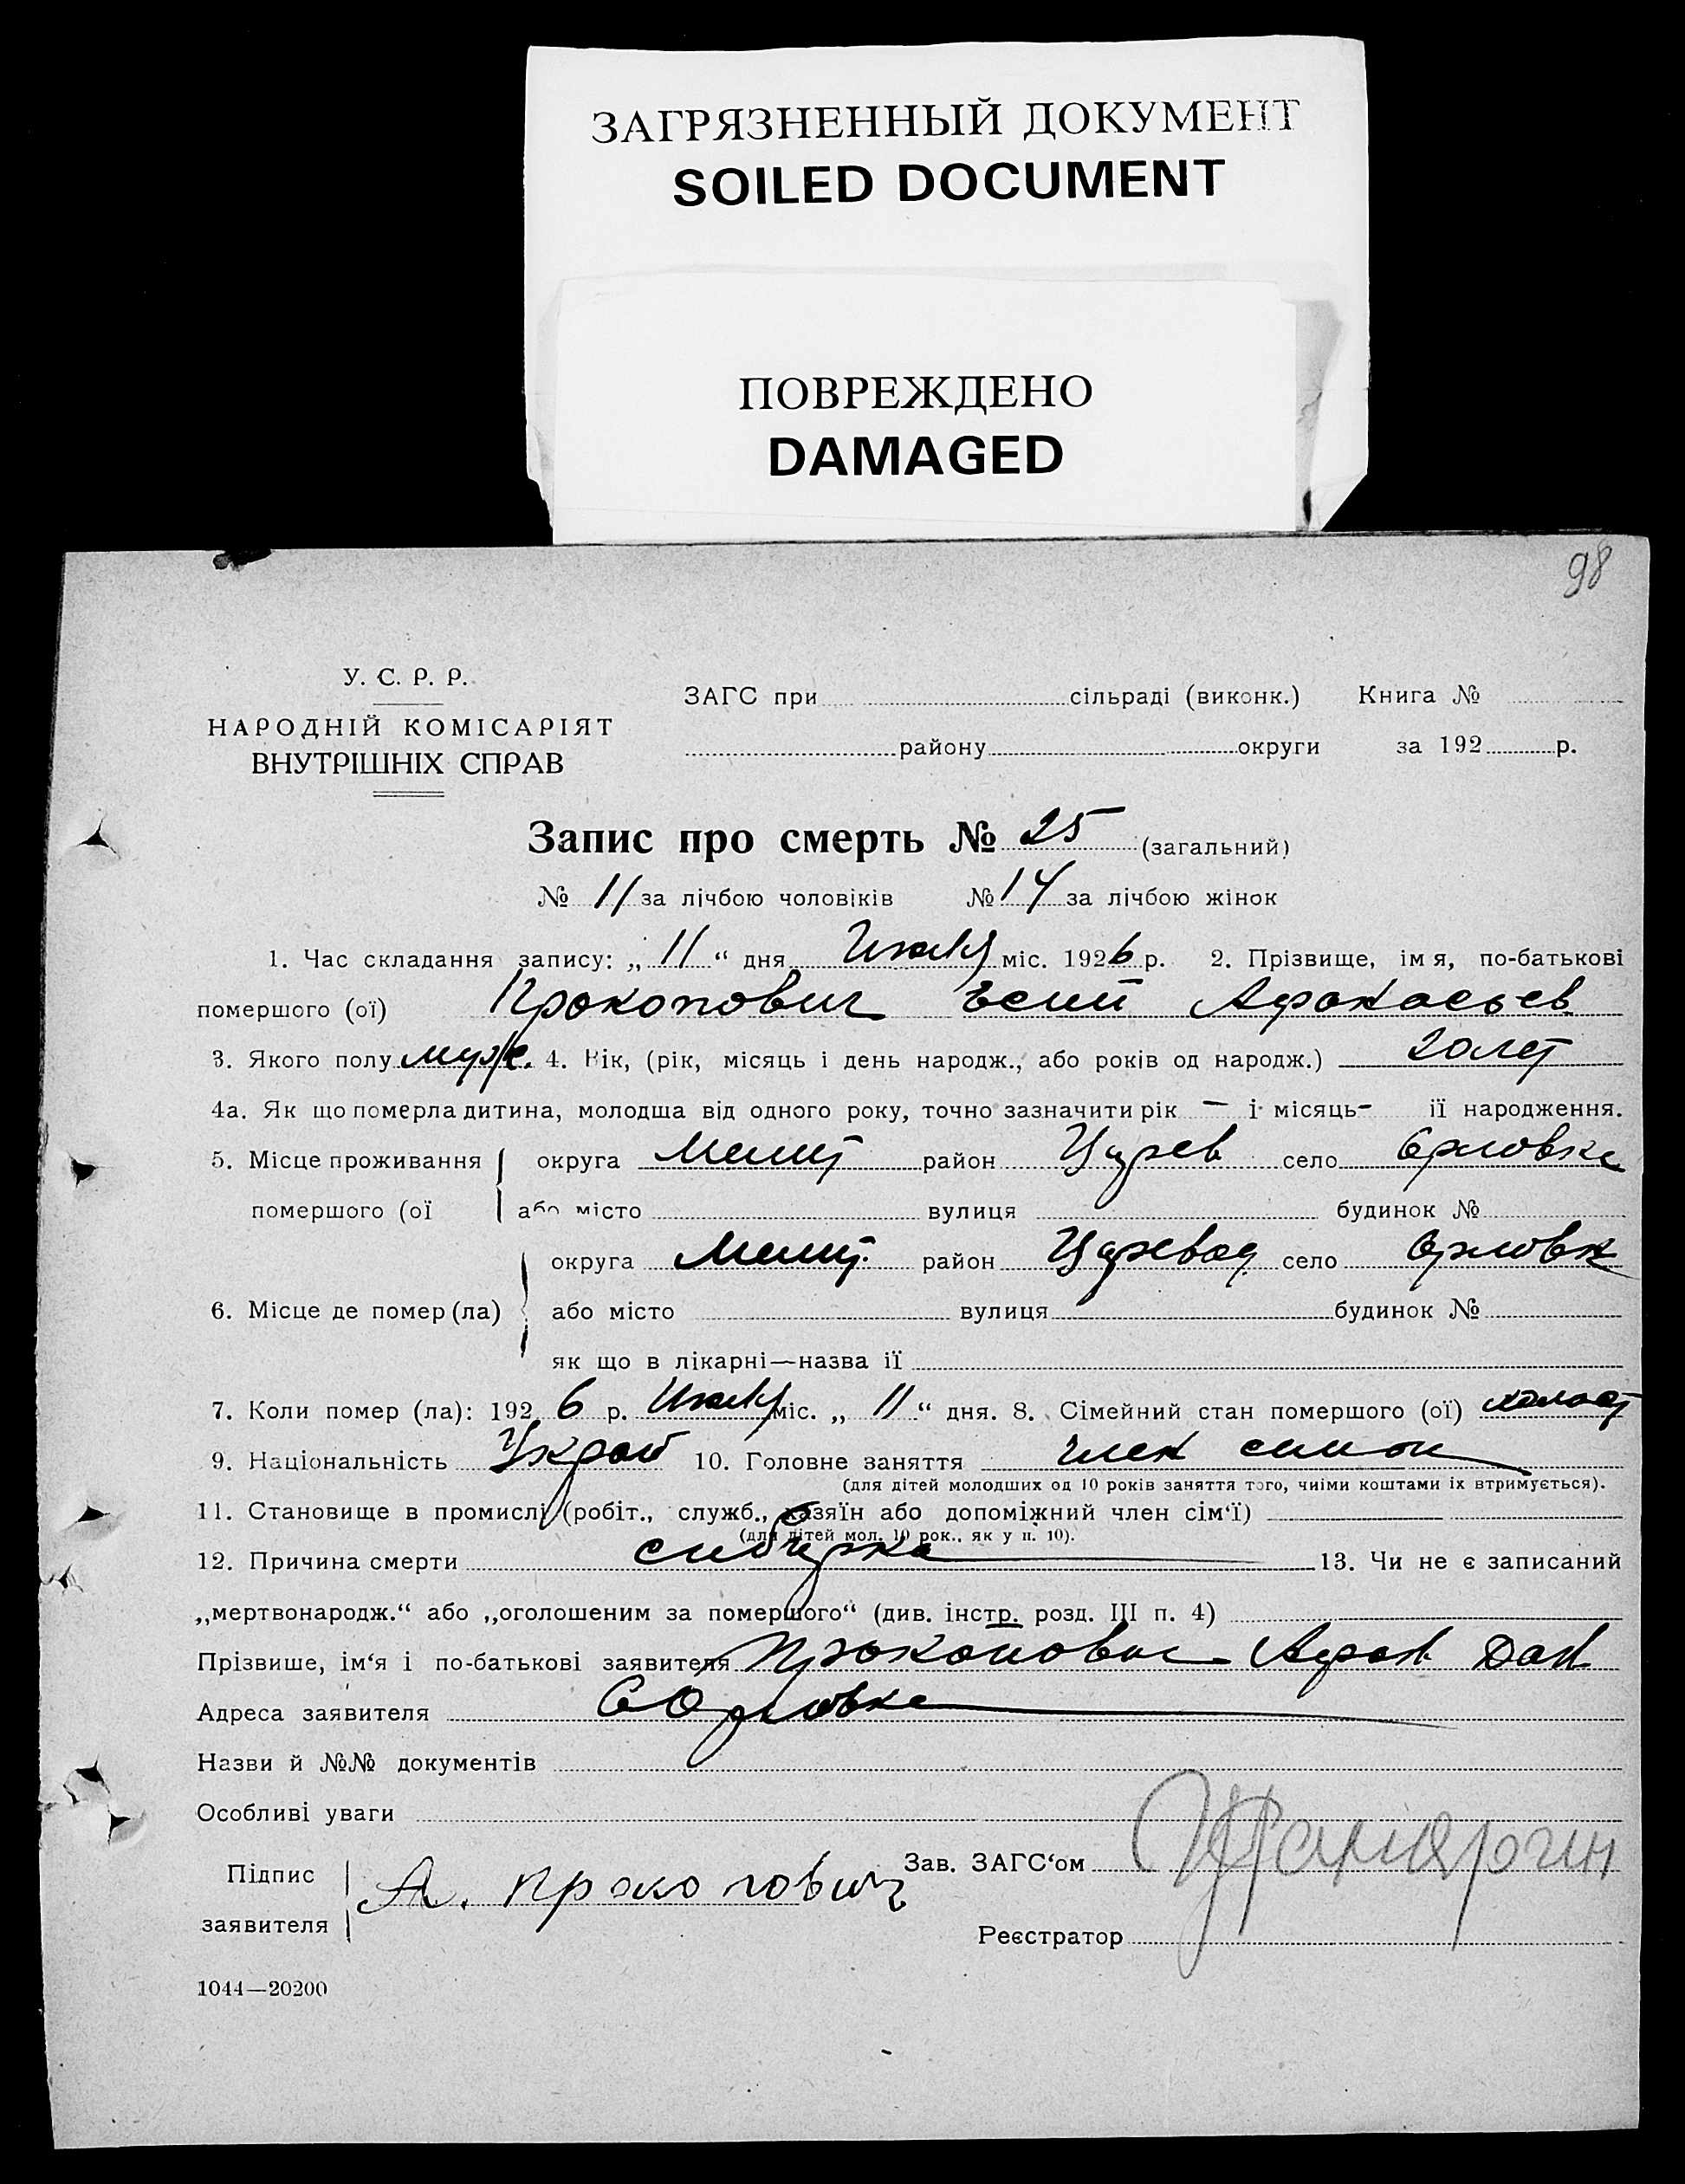 ЗАГРЯЗНЕННЫЙ ДОКУМЕНТ
SOILED DOCUMENT
ПОВРЕЖДЕНО
DAMAGED
98
У. С. Р. Р.
НАРОДНІЙ КОМІСАРІЯТ
ВНУТРІШНІХ СПРАВ
ЗАГС при сільраді (виконк.) Книга №
району округи за 192 р.
Запис про смерть № 25 (загальний)
№ 11 за лічбою чоловіків № 14 за лічбою жінок
1. Час складання запису: „ 11 “ дня міс. 1926 р. 2. Прізвище, імя, по-батькові
помершого (ої) Прокопович
3. Якого полу муж. 4. Вік, (рік, місяць і день народж., або років од народж.) 20 лет
4а. Як що померла дитина, молодша від одного року, точно зазначити рік — і місяць - її народження.
5. Місце проживання округа Мелит район Царев село Орловка
помершого (ої або місто вулиця будинок №
округа Мелит. район село Орловк
6. Місце де помер (ла) або місто вулиця будинок №
як що в лікарні—назва ії
7. Коли помер (ла): 192 6 р. міс. „ 11 “ дня. 8. Сімейний стан помершого (ої) холост
9. Національність 10. Головне заняття член
(для дітей молодших од 10 років заняття того, чиїми коштами іх втримується).
11. Становище в промислі (робіт., служб., хазяїн або допоміжний член сім‘ї)
(для дітей мол. 10 рок., як у п. 10).
12. Причина смерти 13. Чи не є записаний
„мертвонародж.“ або „оголошеним за помершого“ (див. інстр. розд. III п. 4)
Прізвише, ім‘я і по-батькові заявителя Прокопович Афан Дан
Адреса заявителя С Орловка
Назви й №№ документів
Особливі уваги
Підпис
заявителя А. Прокопович
Зав. ЗАГС‘ом
Реєстратор
1044—20200